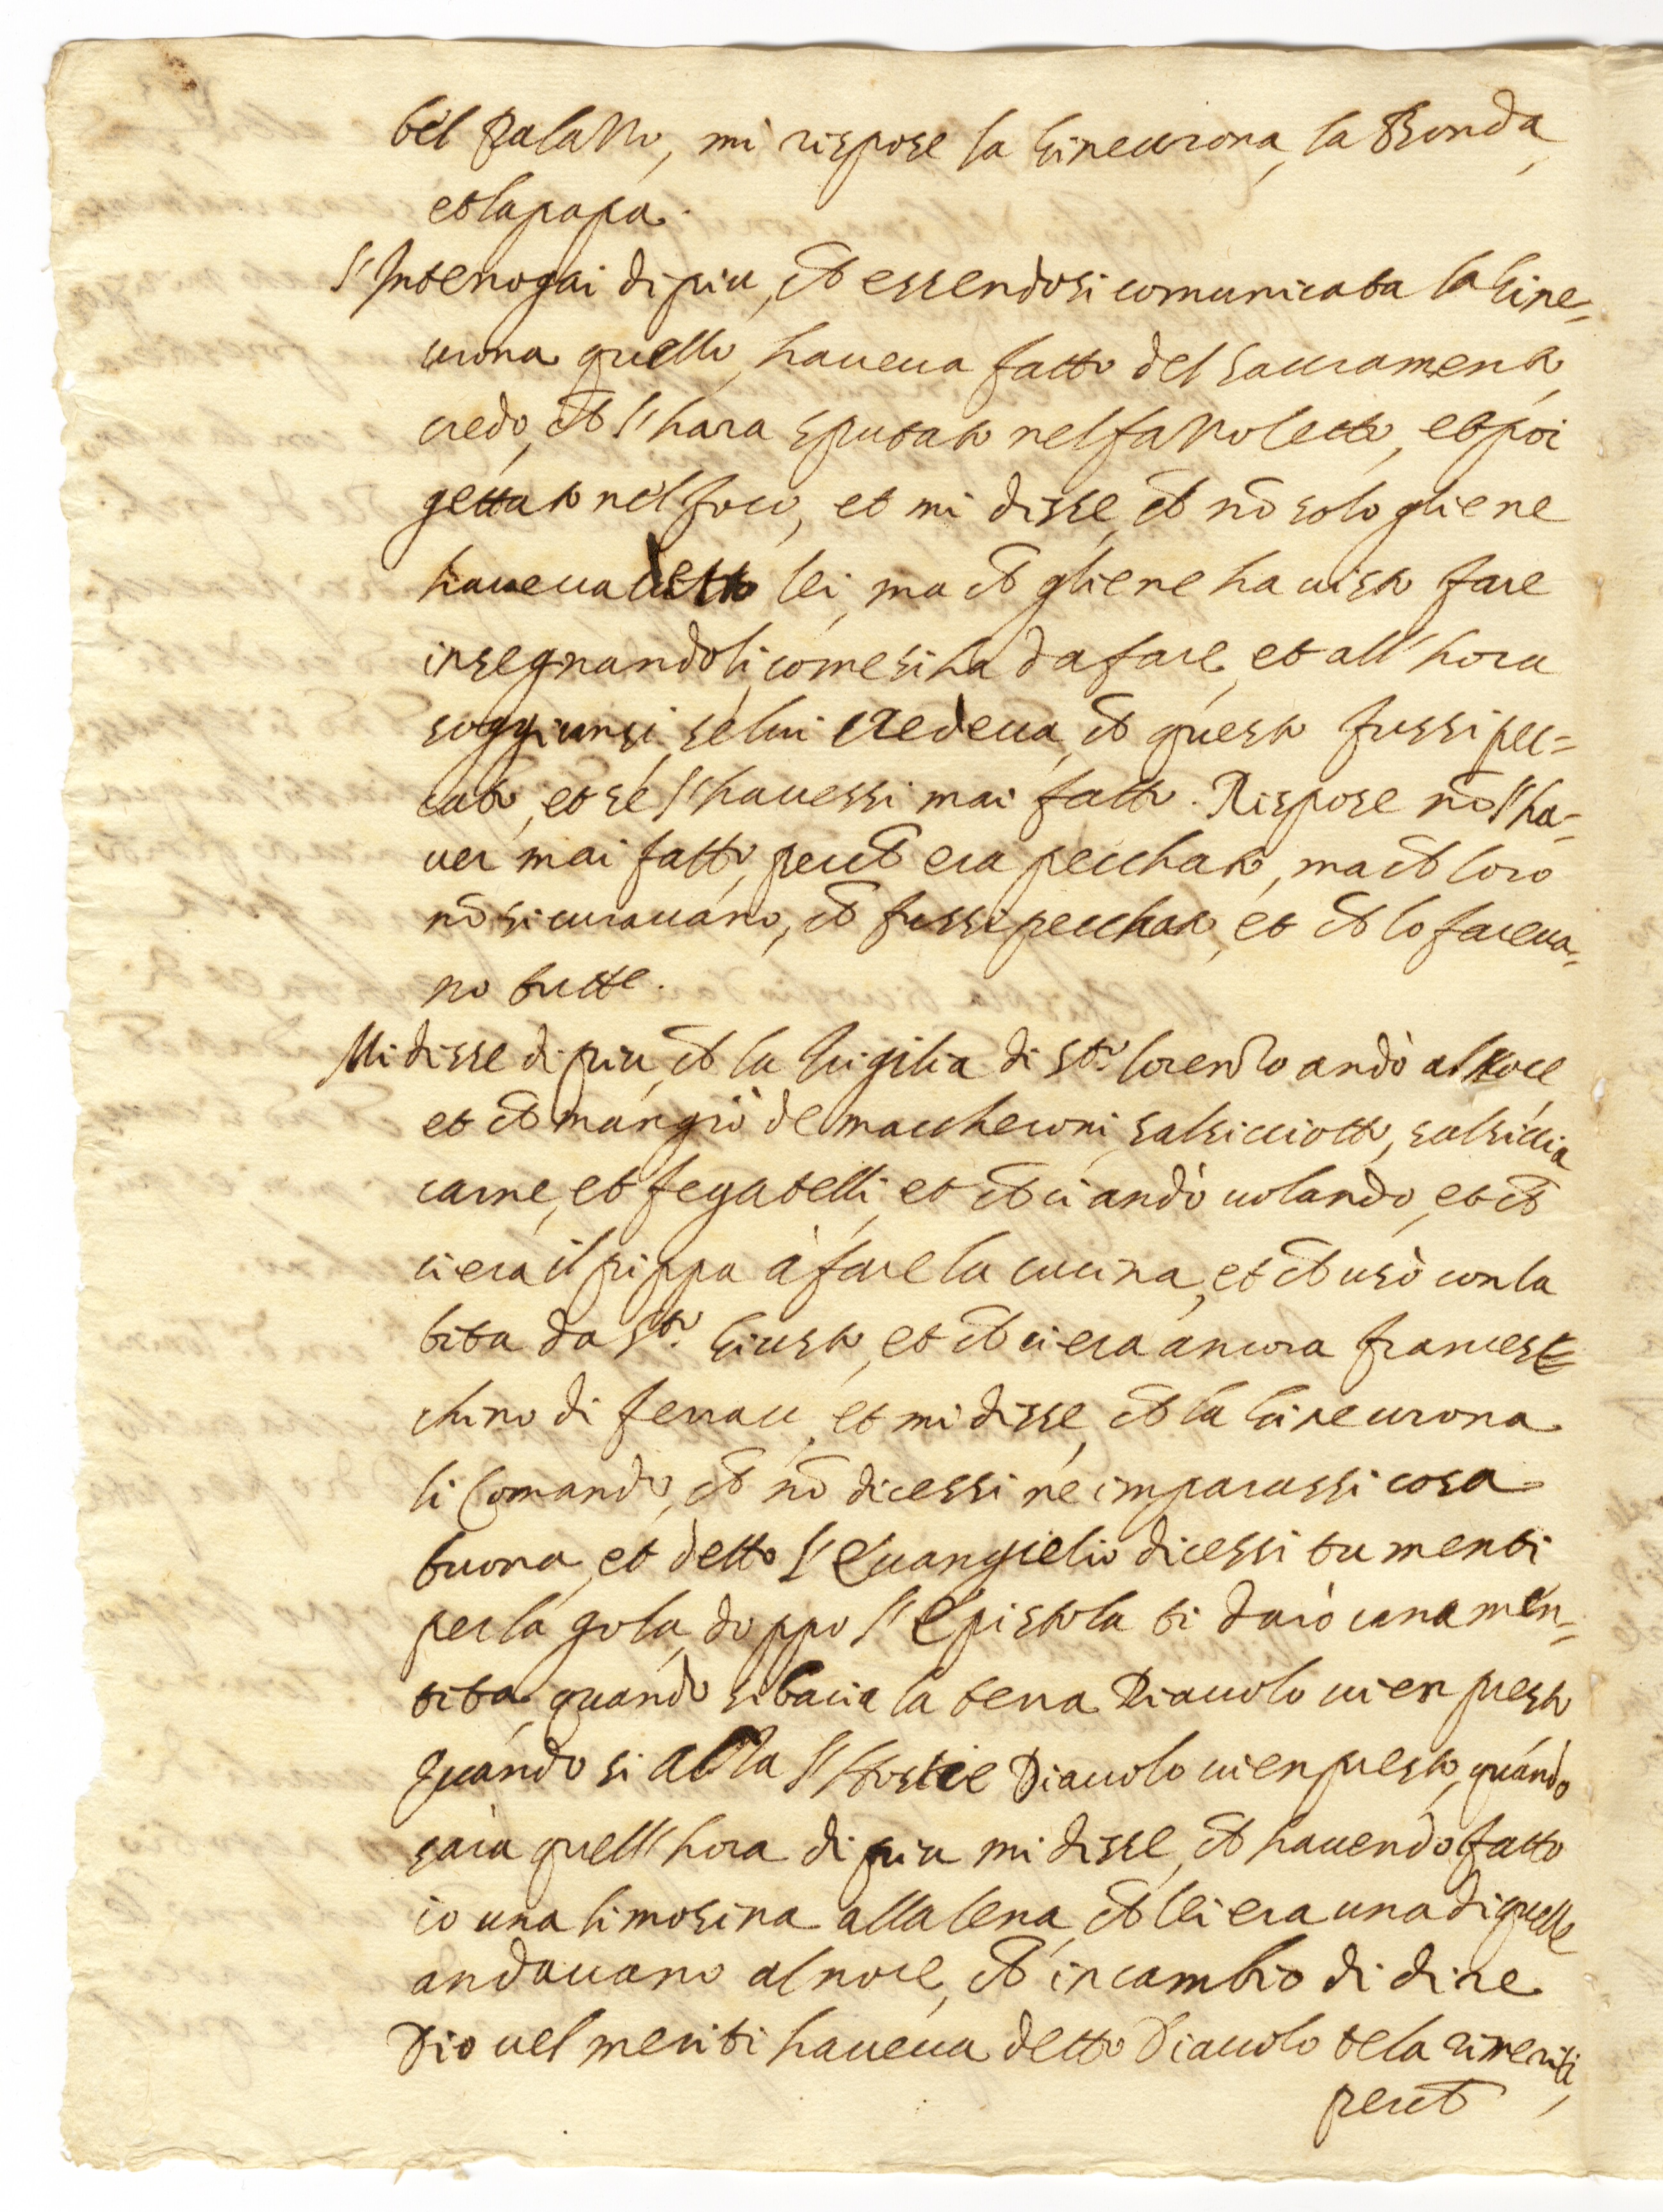 bel Palazzo, mi rispose la Ginevrona, la Bionda,
et la papa.
L'Interrogai di piu, ch̃ essendosi comunicata la Gine-
vrona quello haveva fatto del Sacramento,
credo, ch̃ l'hara sputato nel fazzoletto, et poi
gettato nel foco, et mi disse, ch̃ nõ solo gliene
haveva detto lei, ma ch̃ gliene ha visto fare
insegnandoli come si ha da fare, et all'hora
soggiunsi, se lui credeva, ch̃ questo fussi pec-
cato, et se l'havessi mai fatto. Rispose nõ l'ha-
ver mai fatto, perch̃ era pecchato, ma ch̃ loro
nõ si curavano, ch̃ fussi pecchato, et ch̃ lo faceva-
no tutte.
Mi disse di piu, ch̃ la Vigilia di Sto. lorenzo andò al Noce,
et ch̃ mangiò de maccheroni, salsicciotto, salsiccia
carne, et fegatelli, et ch̃ ci andò volando, et ch̃
ci era il pippa à fare la cucina, et ch̃ usò con la
tita da Sto. Giusto, et ch̃ ci era ancora frances
chino di ferrau, et mi disse, ch̃ la Ginevrona
li Comandò, ch̃ nõ dicessi ne imparassi cosa
buona, et detto l'Evangielio dicessi tu menti
per la gola, doppo l'Epistola ti darò una men-
tita, quando si bacia la terra Diavolo vien presto
quando si alza l'Hostie Diavolo vien presto, quando
sarà quell'hora di piu mi disse, ch̃ havendo fatto
io una limosina alla lena, ch̃ lei era una di quelle
andavano al noce, ch̃ in cambio di dire
Dio vel meriti haveva detto Diavolo te la rimeriti,
perch̃